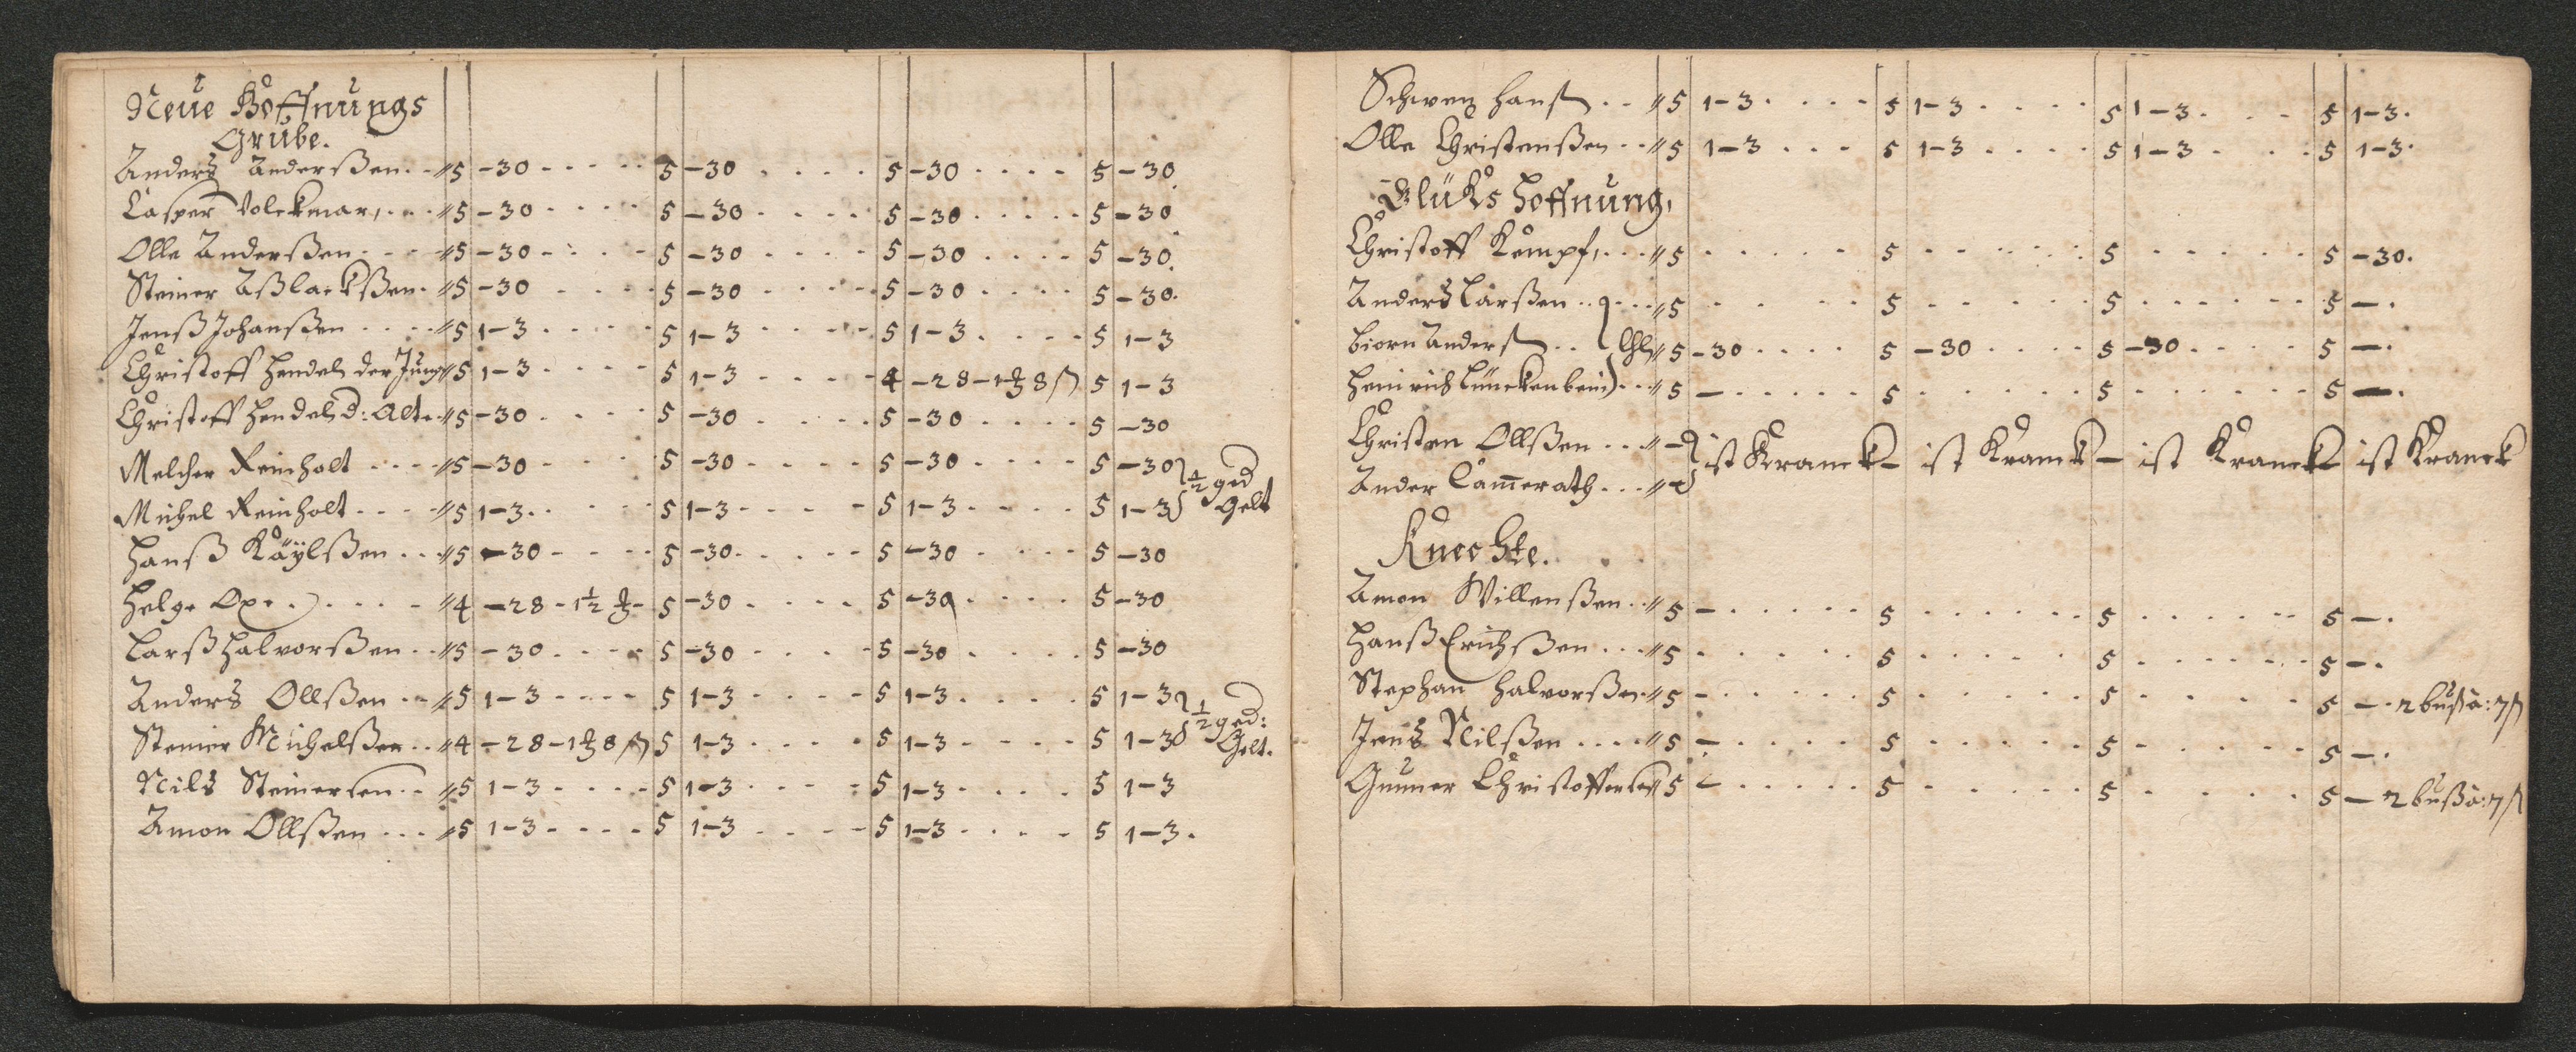 Neüe Hoffnüngs
Grübe.
Anders Anderßen. . // 5 -30 - - - - 5 -30 . . . . 5 -30 . . . . 5 -30.
Casper Volckmar, . . . // 5 -30 - - - - 5 -30 . . . . 5 -30 . . . . 5 -30
Olle Anderßen - - - // 5 -30 - - - - 5 -30 . . . . 5 -30 . . . . 5 -30.
Steiner Aßlackßen. // 5 -30 - - - - 5 -30 . . . . 5 -30 . . . . 5 -30.
Jenß Johanßen . . . . // 5 1-3 . . . . 5 1-3 . . . . 5 1-3 . . . . 5 1-3
Christoff Hendel der Jung // 5 1-3 . . . . 5 1-3 . . . . 4 -28-1 8 ß 5 1-3
Christoff Hendel d: Alt. // 5 -30 . . . . 5 -30 . . . . 5 -30 . . . . 5 -30
Melcher Reinholt . . . . // 5 -30 . . . . 5 -30 . . . . 5 -30 . . . . 5 -30 } ½ ged
Michel Reinholt . . . . // 5 1-3 . . . . 5 1-3 - - - - 5 1-3 . . . . 5 1-3 } Gelt
Hanß Käÿlßen . . // 5 -30 - - - - 5 -30 . . . . 5 -30 . . . . 5 -30
Helge Ope . . . . // 4 -28 - 1½ 5 -30 . . . . 5 -30 . . . . 5 -30
Larß Halvorßen . . // 5 -30 . . . . 5 -30 . . . . 5 -30 . . . . 5 -30
Anders Ollßen . . // 5 1-3 - - - - 5 1-3 . . . . 5 1-3 . . . . 5 1-3 } ½ ged:
Steiner Michelßen . . // 4 -28-1 8 ß 5 1-3 . . . . 5 1-3 - - - - 5 1-3 } Gelt.
Nils Steinersen . . // 5 1-3 - - - - 5 1-3 . . . . 5 1-3 . . . . 5 1-3
Amon Ollßen . . . // 5 1-3 . . . . 5 1-3 . . . . 5 1-3 . . . . 5 1-3.
Schwen Hanß . . // 5 1-3 . . . . 5 1-3 . . . . 5 1-3 . . . . 5 1-3.
Olle Christenßen . . // 5 1-3 . . . . 5 1-3 . . . . 5 1-3 . . . . 5 1-3.
Glüks Hoffnüng,
Christoff Kempf, . . . // 5 . . . . 5 . . . . 5 . . . . 5 -30.
Anders Larßen . . } . . . // 5 . . . . 5 . . . . 5 . . . . 5 -.
Biorn Anderß . . } // 5 -30 . . . . 5 -30 . . . . 5 -30 . . . . 5 -.
Heinrich Lünckenbein . . // 5 - . . . . 5 . . . . 5 . . . . 5 -.
Christen Ollßen . . . // - } ist Kranck - ist Kranck - ist Kranck - ist Kranck
Ander Cam̄erath . . . // - }
Knechte.
Amon Willenßen . . // 5 - . . . . 5 . . . . 5 . . . . 5 -.
Hanß Erichßen . . . // 5 - . . . . 5 . . . . 5 . . . . 5 -.
Stephan Halvorßen // 5 - . . . . 5 . . . . 5 . . . . 5 - . 2 büß à: 7 ß
Jens Nilßen . . . . // 5 - . . . . 5 . . . . 5 . . . . 5 -.
Gunner Christoffersen // 5 - . . . . 5 . . . . 5 . . . . 5 - 2 büß à: 7 ß